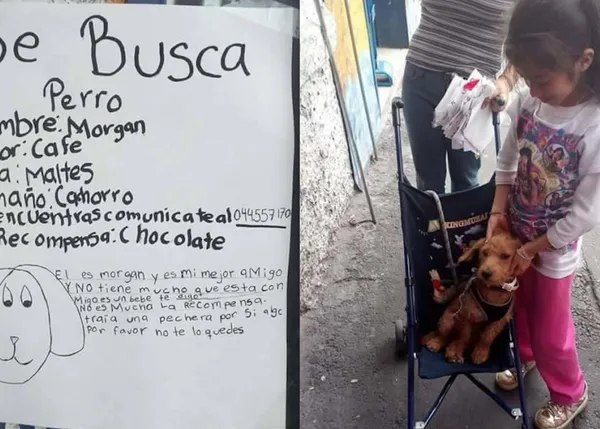 e Busca
Perro
mbre: Morgan
or: Cafe
a: Maltes
maño: Cachorro
encuentras comunicate al 044557170
Recompensa: Chocolate
El es morgan y es mi mejor aMigo
Y NO tiene mucho que esta con
Migo es un bebe te digo
NO es Mucha La Recompensa.
traia una pechera por si algo
Por favor no te lo quedes
KINGMUZA